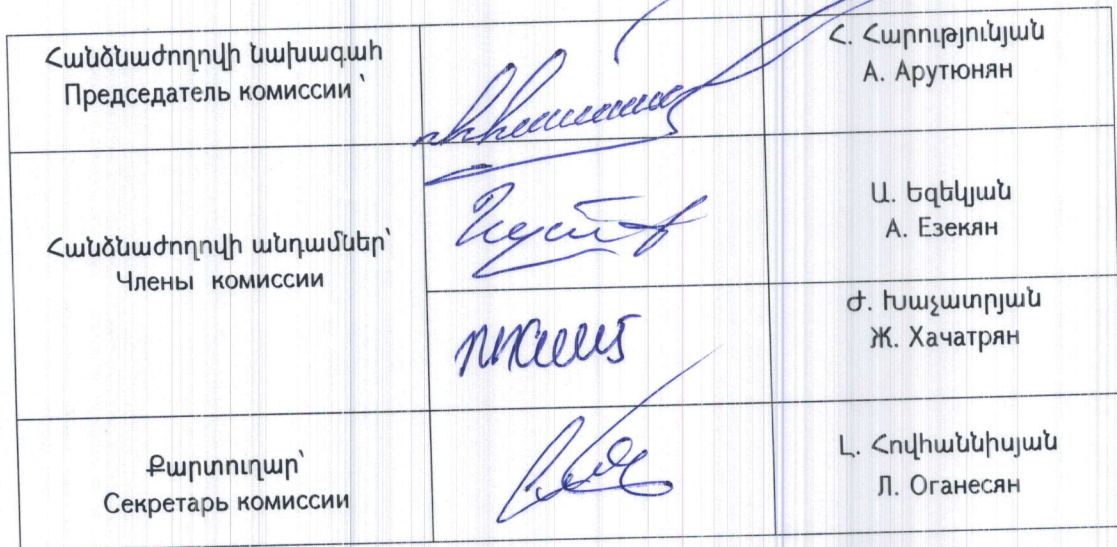 Հանձնաժողովի նախագահ
Председатель комиссии՝
Հ. Հարությունյան
А. Арутюнян
Հանձնաժողովի անդամներ՝
Члены комиссии
Ա. Եզեկյան
А. Езекян
Ժ. Խաչատրյան
Ж. Хачатрян
Քարտուղար՝
Секретарь комиссии
Լ. Հովհաննիսյան
Л. Оганесян